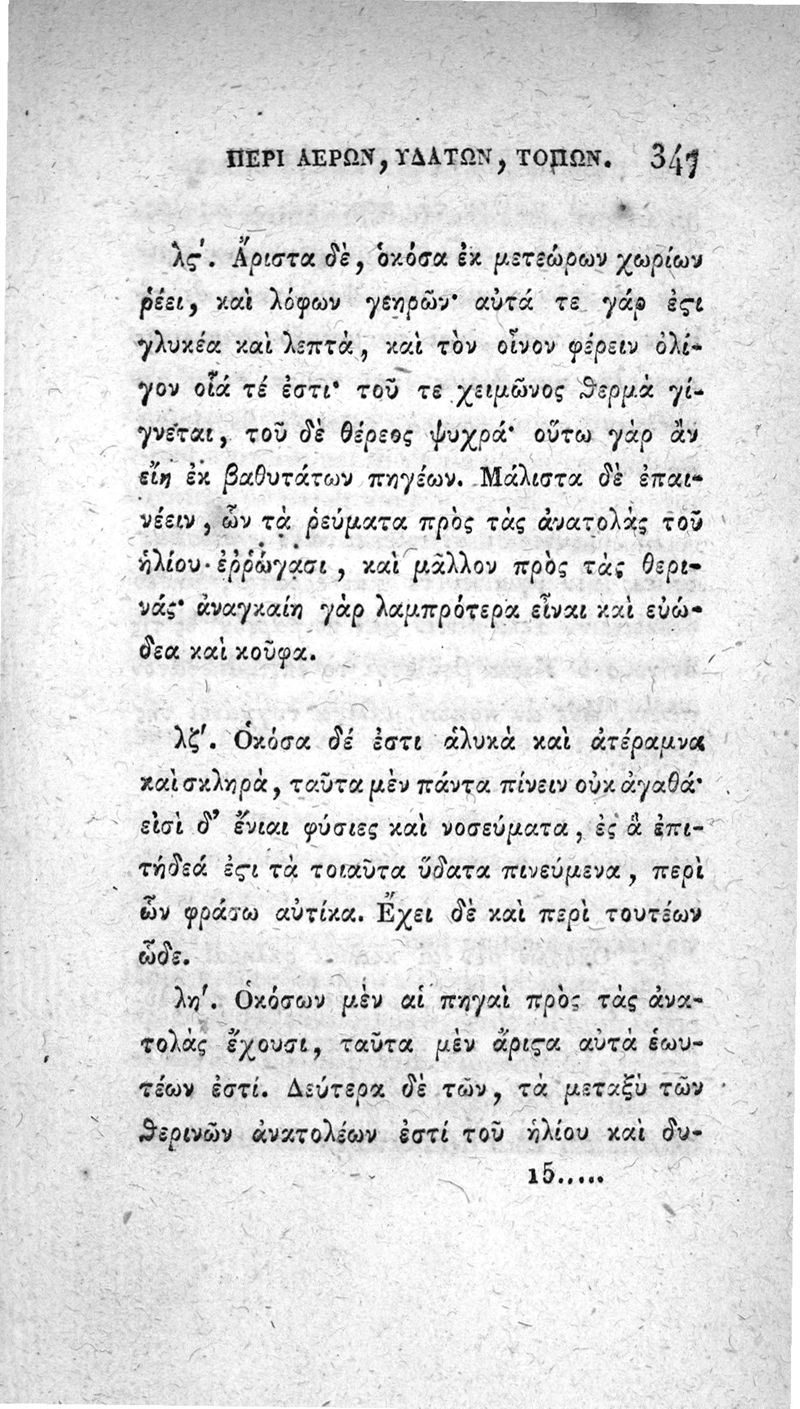 ΠΕΡΙ ΑΕΡΩΝ, ΥΔΑΤΩΝ, ΤΟΠΩΝ. 347
λϛʹ. Ἄριστα δὲ, ὁκόσα ἐκ μετεώρων χωρίων
ῥέει, καὶ λόφων γεηρῶν· αὐτά τε γάρ ἐϛι
γλυκέα καὶ λεπτὰ, καὶ τὸν οἶνον φέρειν ὀλί-
γον οἷά τέ ἐστι· τοῦ τε χειμῶνος ϑερμὰ γί-
γνεται, τοῦ δὲ θέρεος ψυχρά· οὕτω γὰρ ἂν
εἴη ἐκ βαθυτάτων πηγέων. Μάλιστα δὲ ἐπαι-
νέειν, ὧν τὰ ῥεύματα πρὸς τὰς ἀνατολὰς τοῦ
ἡλίου ἐῤῥώγασι, καὶ μᾶλλον πρὸς τὰς θερι-
νάς· ἀναγκαίη γὰρ λαμπρότερα εἶναι καὶ εὐώ-
δεα καὶ κοῦφα.
λζʹ. Ὁκόσα δέ ἐστι ἁλυκὰ καὶ ἀτέραμνα
καὶ σκληρὰ, ταῦτα μὲν πάντα πίνειν οὐκ ἀγαθά·
εἰσὶ δ’ ἔνιαι φύσιες καὶ νοσεύματα, ἐς ἃ ἐπι-
τήδεά ἐϛι τὰ τοιαῦτα ὕδατα πινεύμενα, περὶ
ὧν φράσω αὐτίκα. Ἔχει δὲ καὶ περὶ τουτέων
ὧδε.
ληʹ. Ὁκόσων μὲν αἱ πηγαὶ πρὸς τὰς ἀνα-
τολὰς ἔχουσι, ταῦτα μὲν ἄριϛα αὐτὰ ἑωυ-
τέων ἐστί. Δεύτερα δὲ τῶν, τὰ μεταξὺ τῶν
ϑερινῶν ἀνατολέων ἐστὶ τοῦ ἡλίου καὶ δυ-
15.....